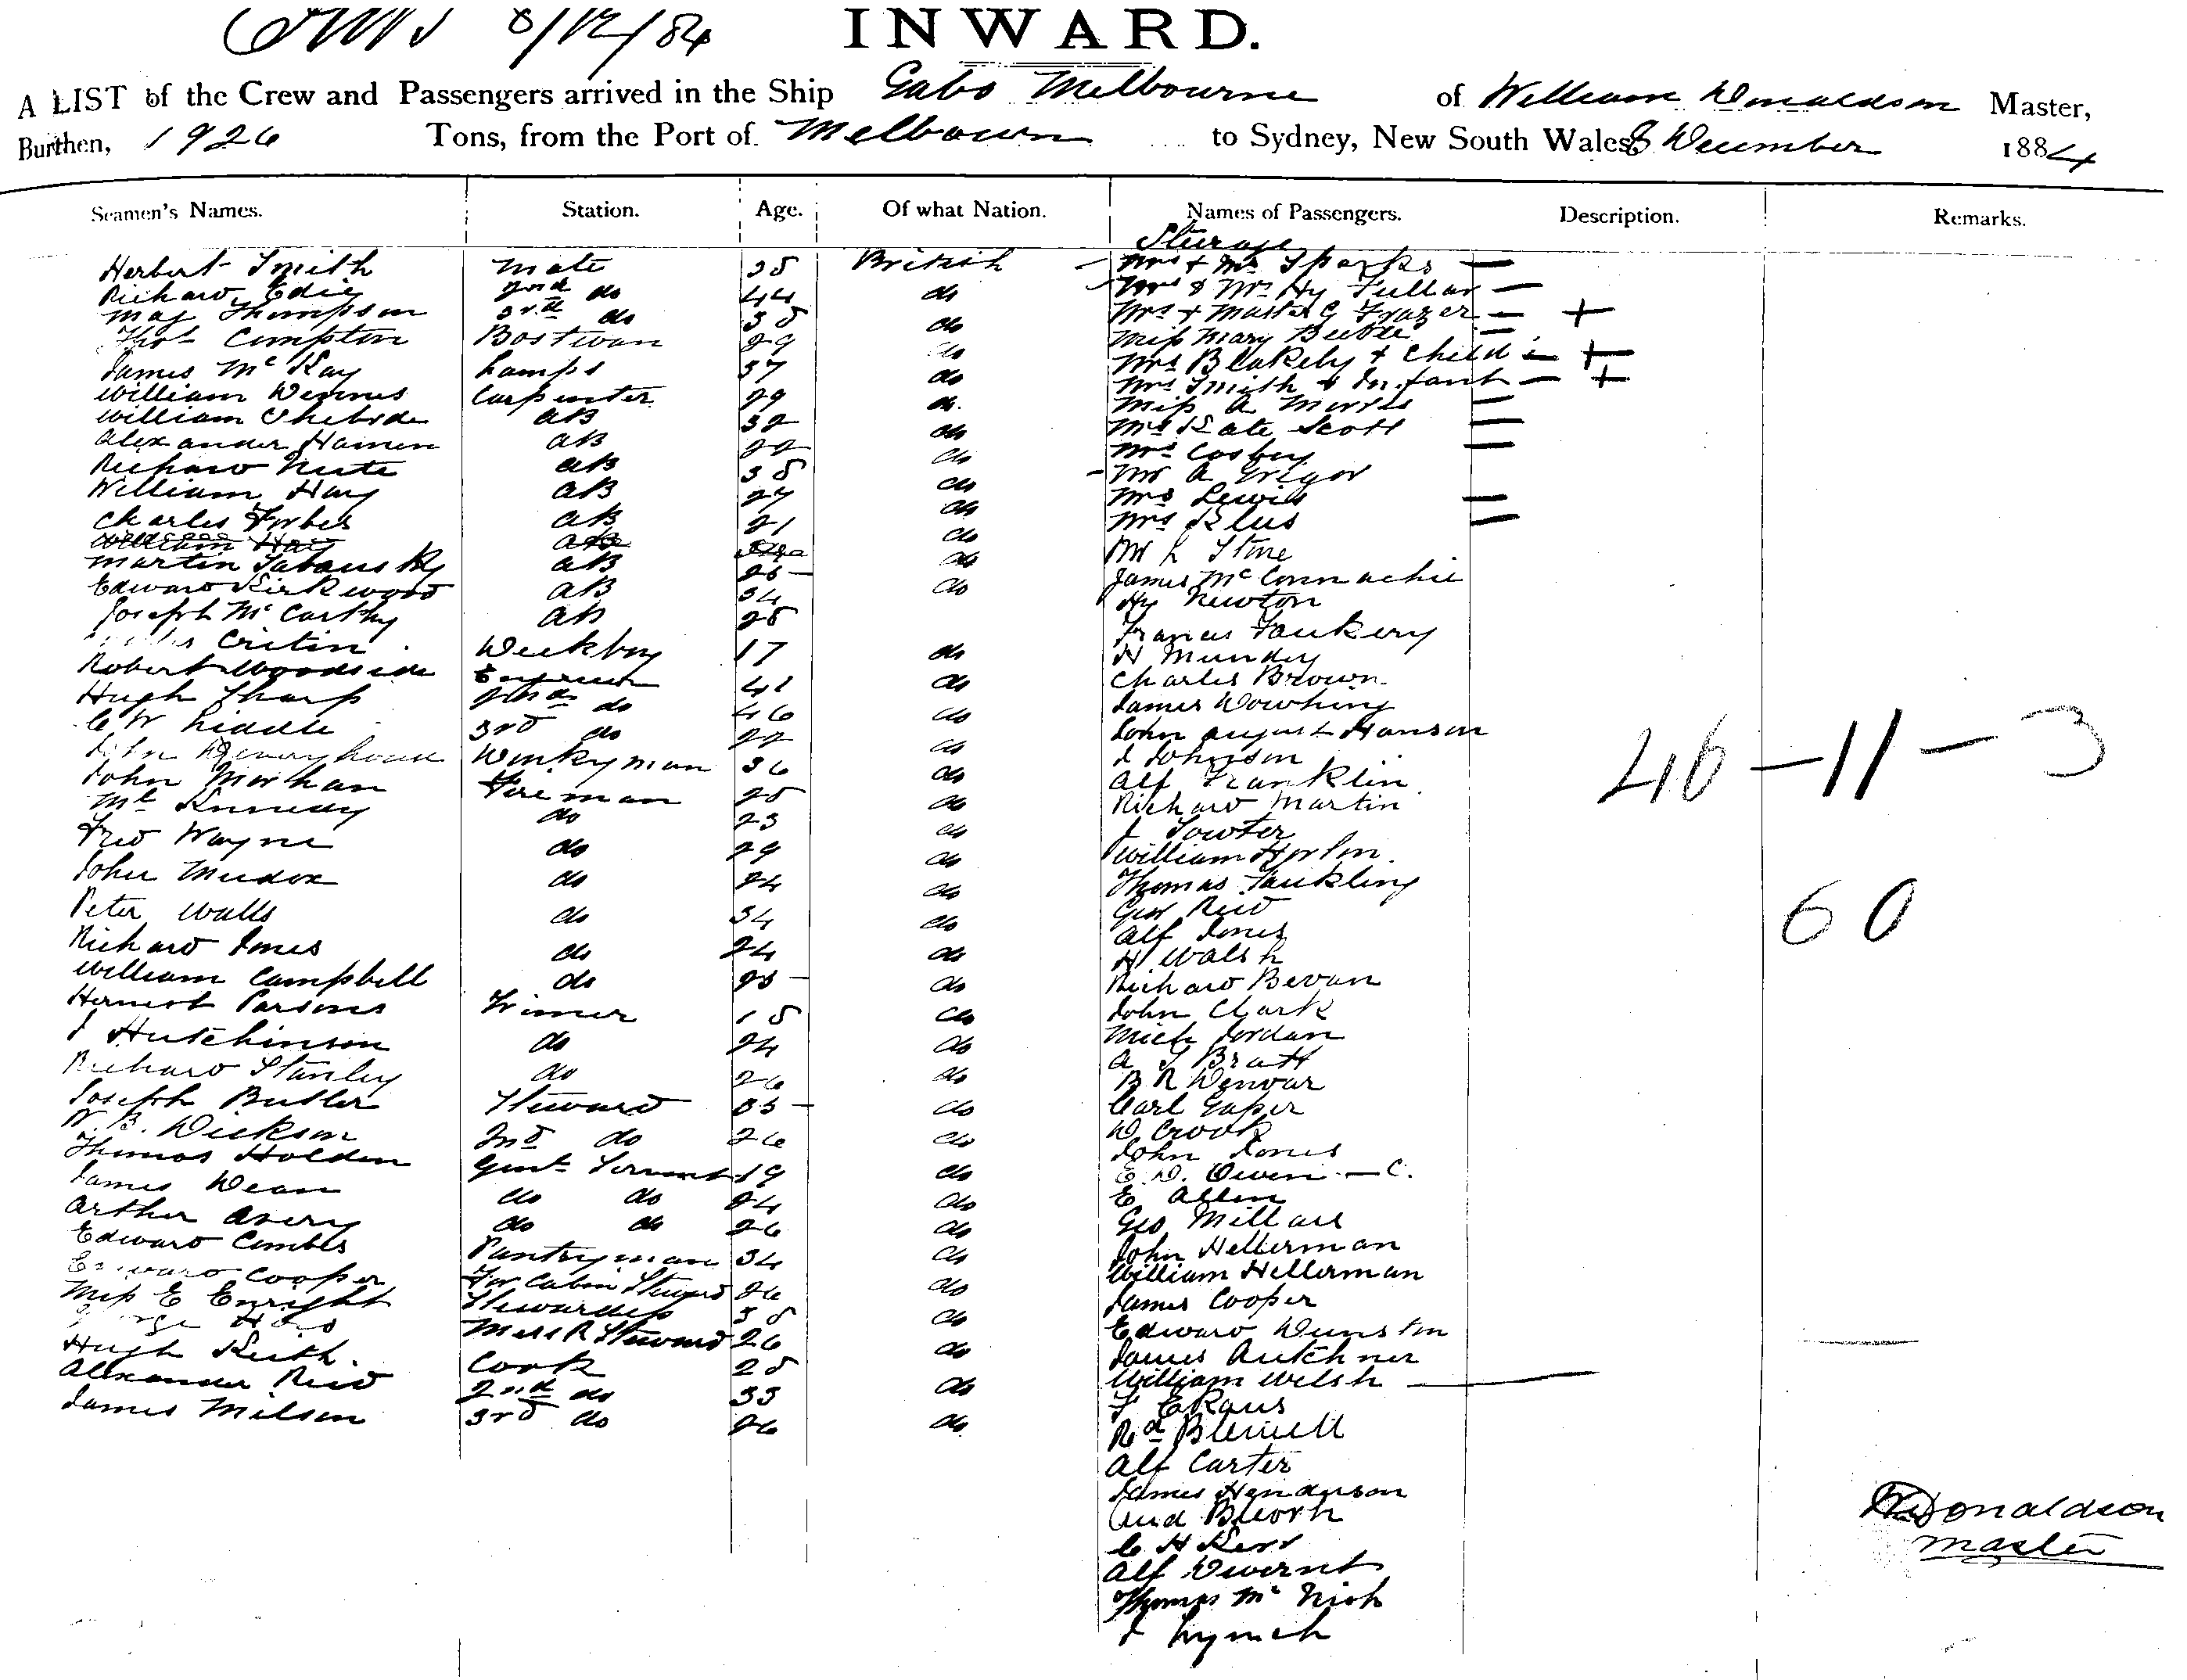 8/12/84 INWARD.
A LIST of the Crew and Passengers arrived in the Ship Gabo Melbourne of William Donaldson Master,
Burthen, 1926 Tons, from the Port of Melbourn to Sydney, New South Wales 8 December 1884
Seamen's Names. Station. Age. Of what Nation. Names of Passengers. Description. Remarks.
Steerage
Herbert Smith Mate 38 British Mrs & Mr Sparks —
Richard Edie 2nd do 44 do Mrs & Mr Hy Fullar —
Thompson 3rd do 38 do Mrs & Master G Frazer — +
Thos Compton Bostwan 29 do Miss Mary —
James McKay Lamps 37 do Mrs Blakely & Child — +
William Carpenter 29 do Mrs Smith & Infant — +
William AB 32 do Miss A Morris —
Alexander AB 22 do Mrs Kate Scott —
Richard AB 38 do Mrs Cosbey —
William Hay AB 27 do Mr A Grigor
Charles Forbes AB 21 do Mrs Lewis —
William Hay AB do Mrs —
Martin AB 23 do Mr L Stone
Edward Kirkwood AB 34 do James McConnachie
Joseph McCarthy AB 28 Hy Newton
Critin Deckboy 17 do Francis
Robert Woodside Engineer 41 do H Munday
Hugh Sharp 2nd do 46 do Charles Brown
C W Liddle 3rd do 22 do James Dowling
John Donkyman 36 do John August Hanson
John Fireman 28 do J Johnson
Mc Kennedy do 23 do Alf Franklin
Fred Wayne do 29 do Richard Martin
John do 24 do J Sowter
Peter Walls do 34 do William Horton
Richard Jones do 24 do Thomas
William Campbell do 23 do Geo Reid
Hernest Parsons Trimer 18 do Alf Jones
J Hutchinson do 24 do H Walsh
Richard Stanley do 26 do Richard Bevan
Joseph Butler Steward 33 do John Clark
W. B. Dickson 2nd do 26 do Mich Jordan
Thomas Holden Genl Servant 19 do A S Bratt
James Dean do do 24 do B R
Arthur Avery do do 26 do Carl
Edward Combes Pantryman 34 do W Crook
Edward Cooper For Cabin Steward 26 do John Jones
Miss E Enright Stewardess 38 do E. D. Owen — C.
George Mess R Steward 26 do E Allen
Hugh Keith Cook 28 do Geo Millar
Alexander Reid 2nd do 33 John Hellerman
James Milson 3rd do 26 do William Hellerman
James Cooper
Edward Dunston
James
William Welsh
F
Rd
Alf Carter
James Henderson
C H Kerr
Alf
Thomas Mc
J Lynch
46 — 11 — 3
60
W Donaldson
Master